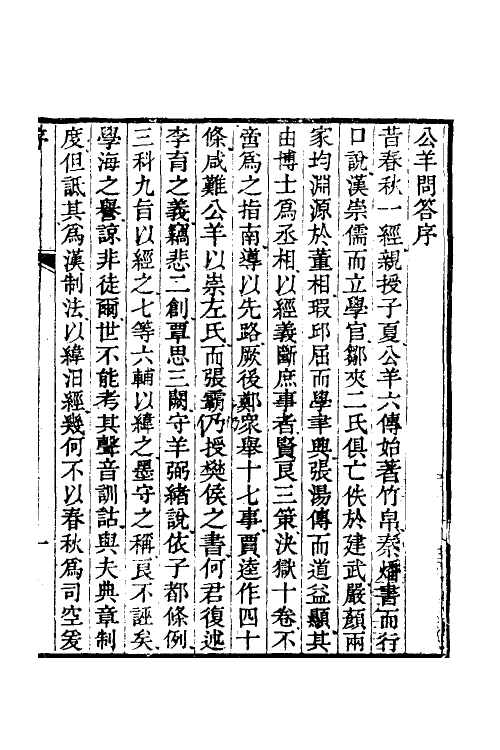 公羊問答序
昔春秋一經親授子夏公羊六傳始著竹帛秦燔書而行
口說漢崇儒而立學官鄒夾二氏俱亡佚於建武嚴顏兩
家均淵源於董相瑕邱屈而學聿興張湯傳而道益顯其
由博士為丞相以經義斷庶事者賢良三策決獄十卷不
啻為之指南導以先路厥後鄭衆舉十七事賈逵作四十
條咸難公羊以崇左氏而張霸乃授樊侯之書何君復述
李育之義竊悲二創覃思三闕守羊弼緒說依子都條例
三科九旨以經之七等六輔以緯之墨守之稱良不誣矣
學海之譽諒非徒爾世不能考其聲音訓詁與夫典章制
度但詆其為漢制法以緯汨經幾何不以春秋為司空爰
序
一